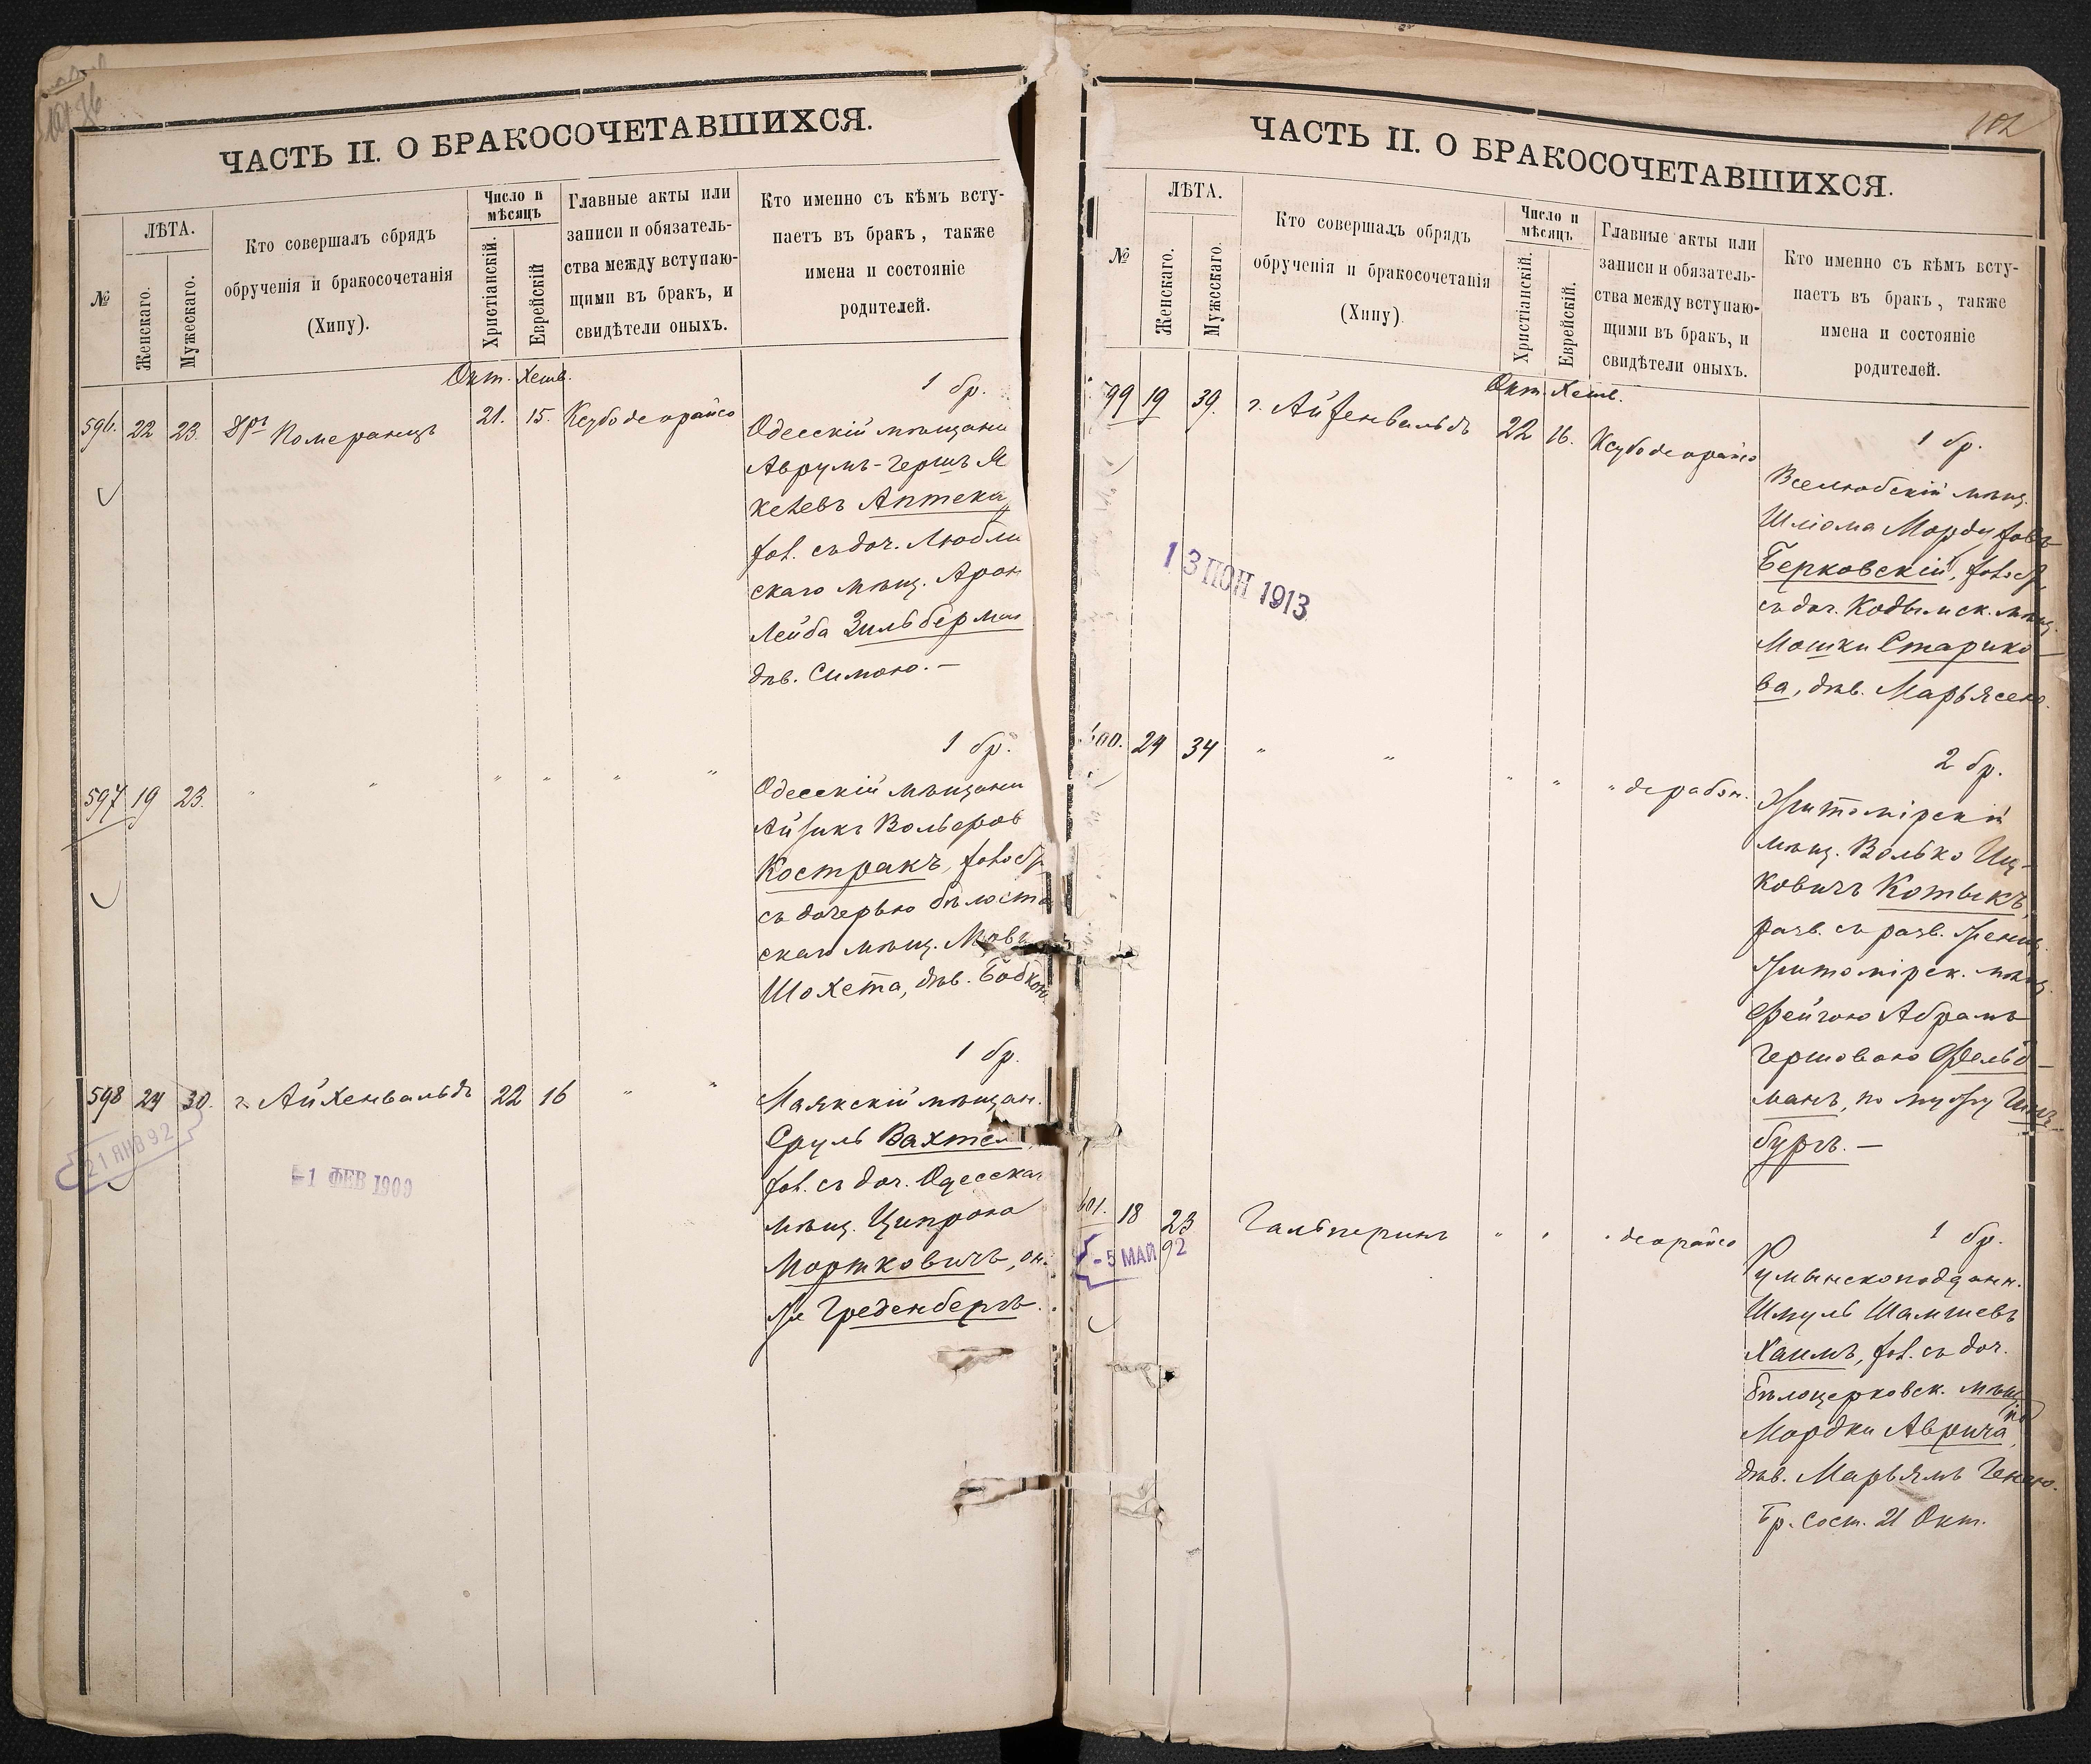 ЧАСТЬ II. О БРАКОСОЧЕТАВШИХСЯ.
№
ЛѢТА.
Женскаго.
Мужескаго.
Кто совершалъ обрядъ
обрученія и бракосочетанія
(Хипу).
Число и
мѣсяцъ
Христіанскій.
Еврейскій
Главные акты или
записи и обязатель-
ства между вступаю-
щими въ бракъ, и
свидѣтели оныхъ.
Кто именно съ кѣмъ всту-
паетъ въ бракъ, также
имена и состояніе
родителей.
Окт. Хешв.
1 бр.
596. 22 23. Дръ Померанцъ 21. 15. Ксубо деорайсо
Одесскій мѣщани
Аврумъ-Гершъ Я
келевъ Аптека
хол. съ доч. Любли
скаго мѣщ. Арон
Лейба Зильберман
дѣв. Симою. —
1 бр.
597 19 23. " " " " " "
Одесскій мѣщани
Айзикъ Вольфров
Костракъ, холобр
съ дочерью бѣлосто
скаго мѣщ.
Шохета, дѣв.
1 бр.
598 24 30. г. Айхенвальдъ 22 16 " "
Маякскій мѣщан.
Сруль Вахтел
хол. съ доч. Одесскаг
мѣщ. Ципрою
Мортковичъ, он.
же Греденбергъ.
21 ЯНВ 92
-1 ФЕВ 1909
ЧАСТЬ II. О БРАКОСОЧЕТАВШИХСЯ.
102
№
ЛѢТА.
Женскаго.
Мужескаго.
Кто совершалъ обрядъ
обрученія и бракосочетанія
(Хипу).
Число и
мѣсяцъ
Христіанскій.
Еврейскій.
Главные акты или
записи и обязатель-
ства между вступаю-
щими въ бракъ, и
свидѣтели оныхъ.
Кто именно съ кѣмъ всту-
паетъ въ бракъ, также
имена и состояніе
родителей.
Окт. Хешв.
599 19 39. г. Айхенвальдъ 22 16. Ксубо деорайсо
1 бр.
Вселюбскій мѣщ.
Шліома Мордуховъ
Берковскій, холобр,
съ доч. Кодымск. мѣщ.
Мошки Старико
ва, дѣв. Марьясею.
13 ІЮН 1913
600. 24 34 " " " " " дерабон.
2 бр.
Житомірскій
мѣщ. Волько Иц-
ковичъ Котыкъ,
разв. съ разв. женщ.
Житомірск. мѣщ.
Фейгою Абрамъ
Гершовою Фельд-
манъ, по мужу Гинз-
бургъ. —
601. 18 23 Гальперинъ " " " деорайсо
1 бр.
Румынскоподданн.
Шмуль Шамшевъ
Хаимъ, хол. съ доч.
Бѣлоцерковск. мѣщ
Мордки Аврича,
дѣв. Марьямъ Генею.
Бр. сост. 21 Окт.
-5 МАЙ 92